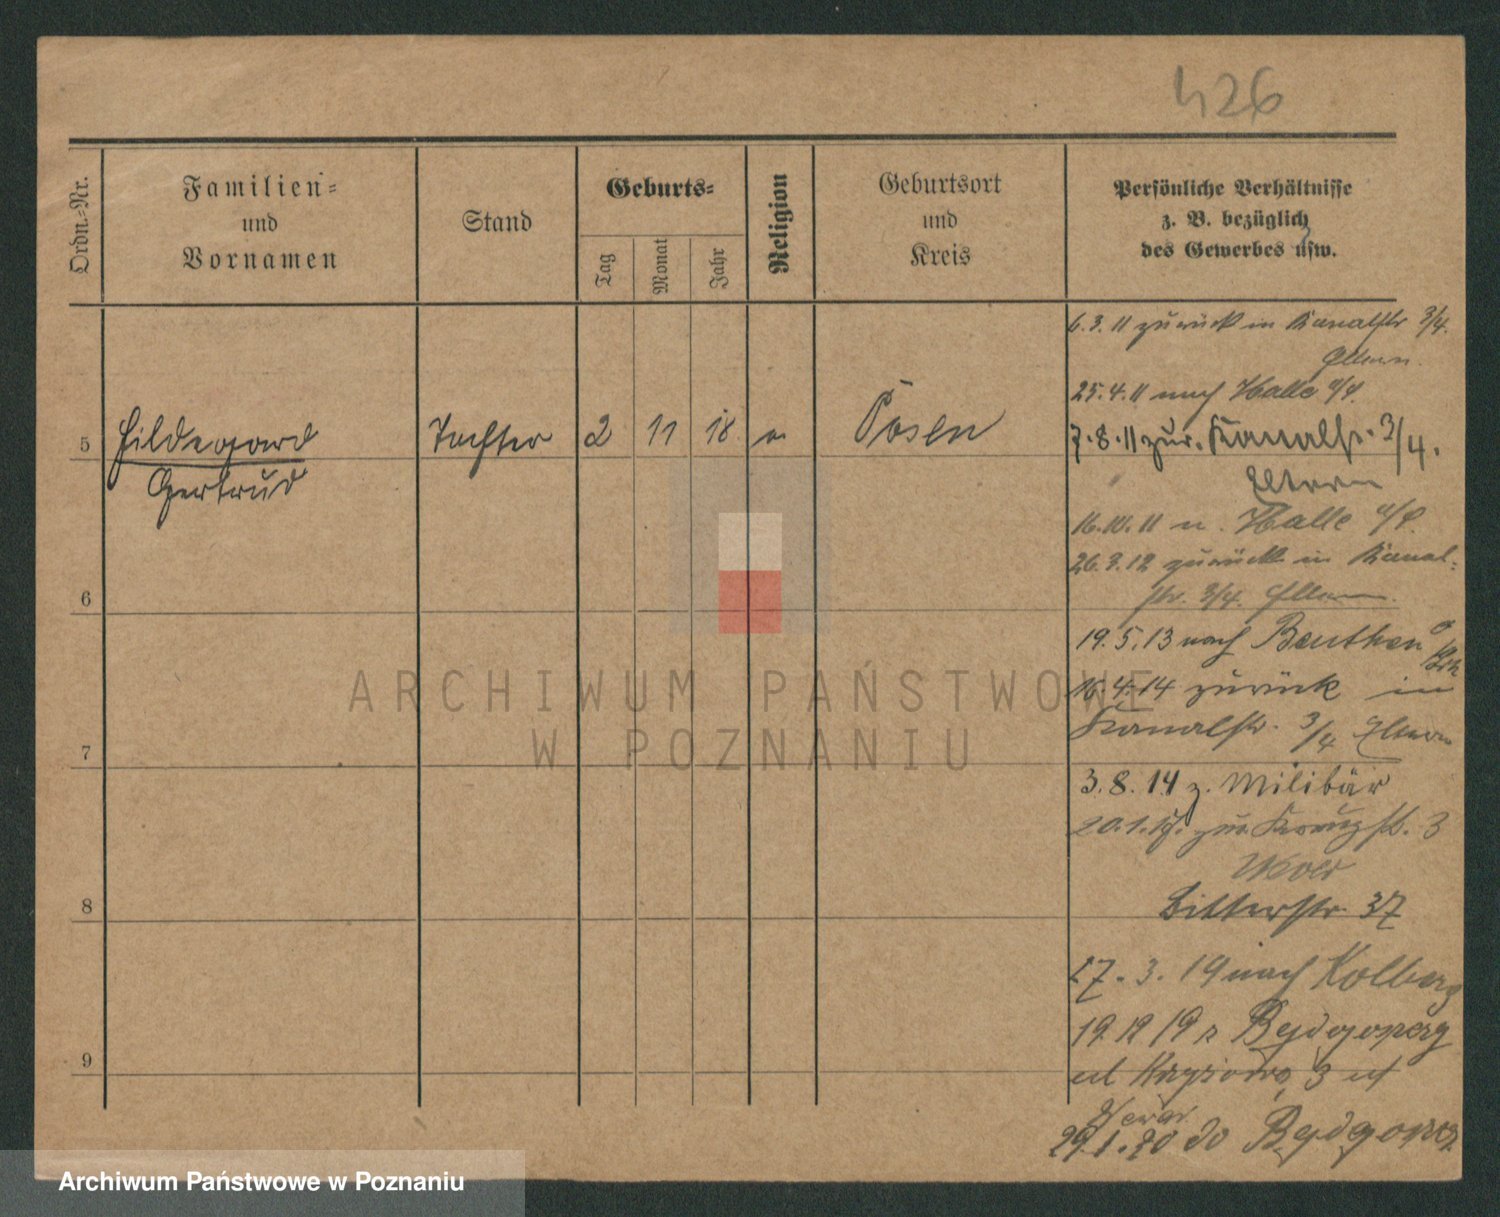 426
Ordn.-Nr.
Familien-
und
Vornamen
Stand
Geburts-
Tag
Monat
Jahr
Religion
Geburtsort
und
Kreis
Persönliche Verhältnisse
z. B. bezüglich
des Gewerbes usw.
6.3.11 zurück in Kanalstr 3/4.
Eltern.
25.4.11 nach Halle a/S.
5 Hildegard Tochter 2 11 18 Posen
Gertrud
7.8.11 zur. Kanalstr. 3/4.
Eltern
16.10.11 n. Halle a/S.
26.3.12 zurück in Kanal-
6
str. 3/4. Eltern.
19.5.13 nach Beuthen
16.4.14 zurück in
Kanalstr. 3/4 Eltern
7
3.8.14 z. Militär
20.1. zur. Kreuzstr. 3
8
Bitterstr. 37
17.3.19 nach Kolberg
19.12 19 z Bydgoszcz
9
ul 3
29.1.20 do Bydgoszcz
ARCHIWUM PAŃSTWOWE
W POZNANIU
Archiwum Państwowe w Poznaniu